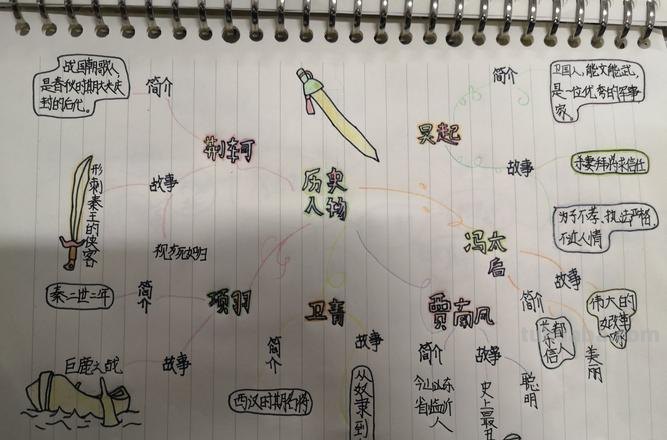 战国朝歌人,
是春秋时期大夫庆
封的后代。
简介
荆轲
故事
刺秦王的侠客
视死如归
历史
人物
吴起
简介
卫国人,能文能武,
是一位优秀的军事
家。
故事
杀妻拜将求信任
为子不孝,执法严格,
不近人情
冯太
后
故事
伟大的
女改革
家
简介
信都
人
美丽
聪明
项羽
简介
秦二世二年
故事
巨鹿之战
卫青
简介
西汉时期名将
故事
从奴隶到
贾南风
简介
今山东
省临沂
人
故事
史上最